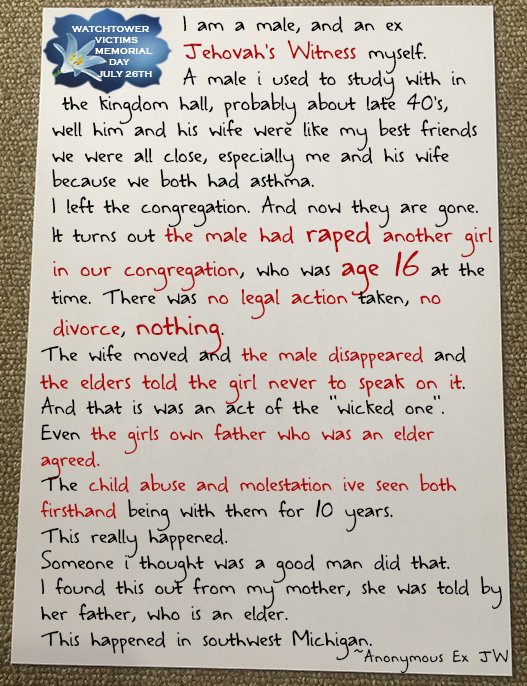 WATCHTOWER
VICTIMS
MEMORIAL
DAY
JULY 26TH
I am a male, and an ex
Jehovah's Witness myself.
A male i used to study with in
the kingdom hall, probably about late 40's,
well him and his wife were like my best friends
we were all close, especially me and his wife
because we both had asthma.
I left the congregation. And now they are gone.
It turns out the male had raped another girl
in our congregation, who was age 16 at the
time. There was no legal action taken, no
divorce, nothing.
The wife moved and the male disappeared and
the elders told the girl never to speak on it.
And that is was an act of the "wicked one".
Even the girls own father who was an elder
agreed.
The child abuse and molestation ive seen both
firsthand being with them for 10 years.
This really happened.
Someone i thought was a good man did that.
I found this out from my mother, she was told by
her father, who is an elder.
This happened in southwest Michigan.
~Anonymous Ex JW